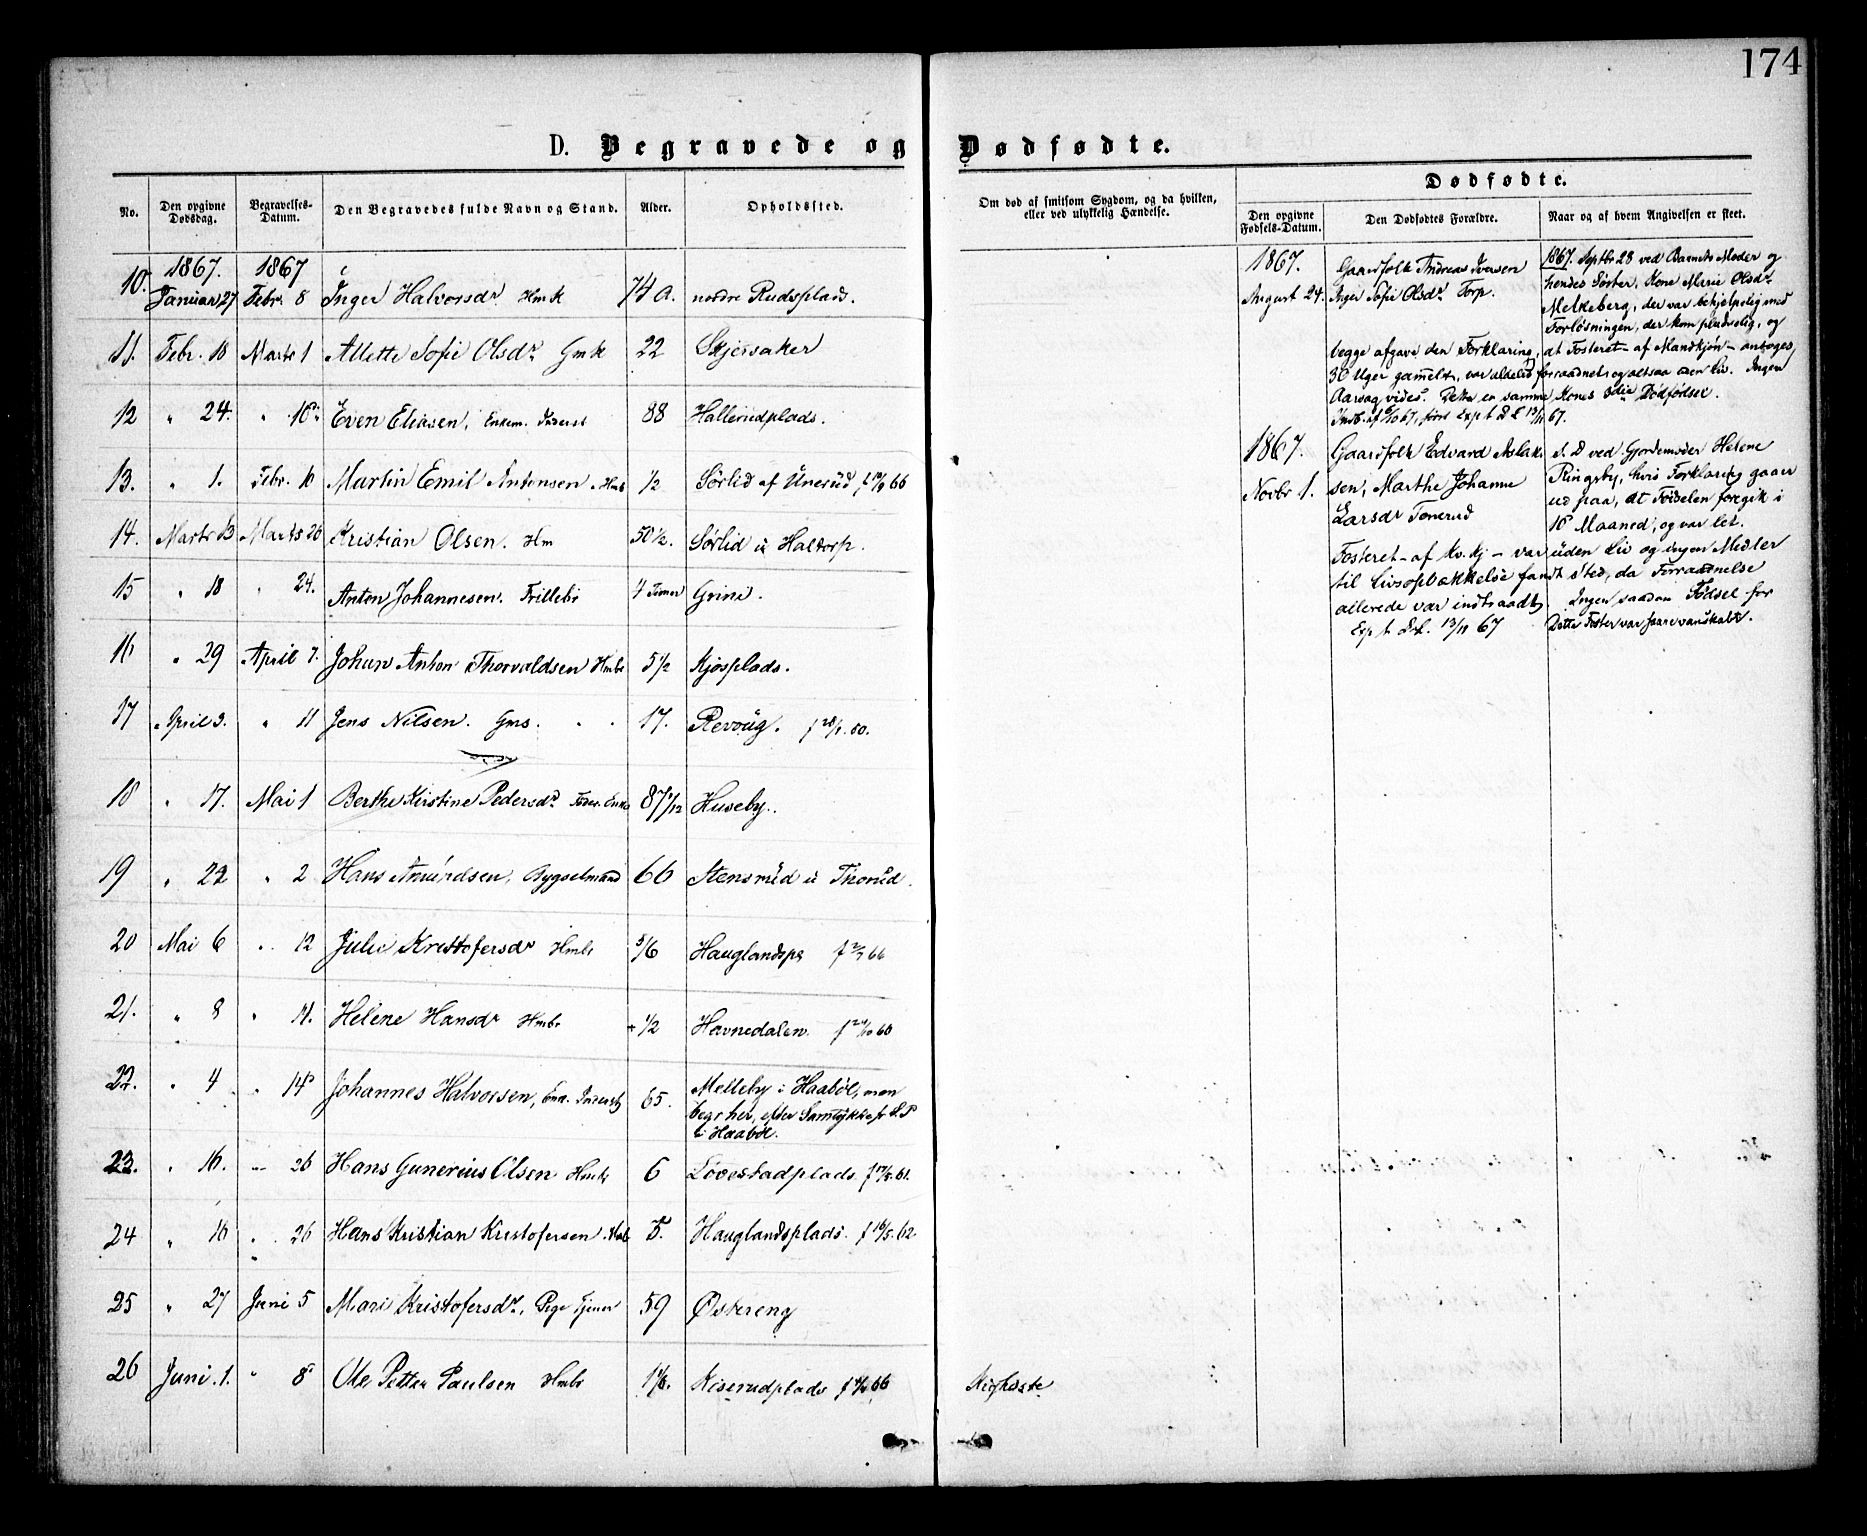 174
D. Begravede og Dødfødte.
No.
Den opgivne Dødsdag.
Begravelses-Datum.
Den Begravedes fulde Navn og Stand.
Alder.
Opholdssted.
Om død af smitsom Sygdom, og da hvilken, eller ved ulykkelig Hændelse.
Dødfødte.
Den opgivne Fødsels-Datum.
Den Dødfødtes Forældre.
Naar og af hvem Angivelsen er skeet.
1867. 1867
10. Januar 27 Febr. 8 Inger Halvorsdr Hmk 74 a. nordre Rudsplads.
11. Febr. 18 Marts 1 Allette Sofie Olsdr Gmk 22 Skjersaker
12 " 24. " 10 Even Eliasen, Enkem. Inderst 88 Hallerudplads.
13. " 1. Febr. 10 Martin Emil Antonsen Hmb 1/2 Sørlid af Unerud f 19/9 66
14. Marts 13 Marts 20 Kristian Olsen. Hm 50 1/2. Sørlid u Haltorp.
15 " 18 " 24. Anton Johannesen. Frillebr 4 Timer Grini.
16 " 29 April 7. Johan Anton Thorvaldsen Hmbr 5 1/2 Kjosplads.
17 April 3. " 11 Jens Nilsen. Gms. 17. Revoug. f 28/1. 50.
18 " 17. Mai 1 Berthe Kirstine Pedersdr Foder. Enke 87 1/12 Huseby.
19 " 22 " 2 Hans Amundsen, Bygselmand 66 Stensrud u Thorud.
20 Mai 6 " 12 Julie Kristofersdr Hmbr 5/6 Hauglandspl f 2/7 66
21. " 8 " 11. Helene Hansdr Hmbr 1/2 Havnedalen. f 24/10 60
22. " 4 " 14 Johannes Halvorsen, Enk. Inderst 65. Melleby i Haabøl, men
begr her, efter Samtykke fr S.P
i Haabøl.
23. " 16. " 26 Hans Gunerius Olsen Hmbr 6 Løvestadplads. f 17/5. 61.
24 " 16 " 26 Hans Kristian Kristofersen Hmb 5. Hauglandsplads. f 16/5. 62
25 " 27 Juni 5 Mari Kristofersdr, Pige Tjener 59 Østereng
26 Juni. 1. " 8 Ole Petter Paulsen Hmbr Kiserudplads Kighoste
1867.
August 24.
Gaardfolk Andreas Iversen
Inger Sofie Olsdr Torp.
1867. Septbr 28 ved Barnets Moder og
hendes Søster, Kone Marie Olsdr
Melkeberg, der var behjelpelig med
Forløsningen, der kom pludselig, og
begge afgave den Forklaring, at Fosteret - af Mandkjøn - antoges
30 Uger gammelt, var aldeles forraadnet og altsaa uden Liv. Ingen
Aarsag vides. Dette er samme Kones 3die Dødfødsel.
1867.
Novbr 1.
Gaardfolk Edvard Aslak-
sen, Marthe Johanne
Larsdr Tonerud
s. D ved Gjordemoder Helene
Ringsby, hvis Forklaring gaaer
ud paa, at Fødselen foregik i
10 Maaned, og var let.
Fosteret - af Kv. Kj - var uden Liv og ingen Midler
til Livsoplækkelse fandt Sted, da Forraadnelse
allerede var indtraadt. Ingen saadan Fødsel for
Exp t S.L. 13/11 67 Dette Foster var fare vanskabt.